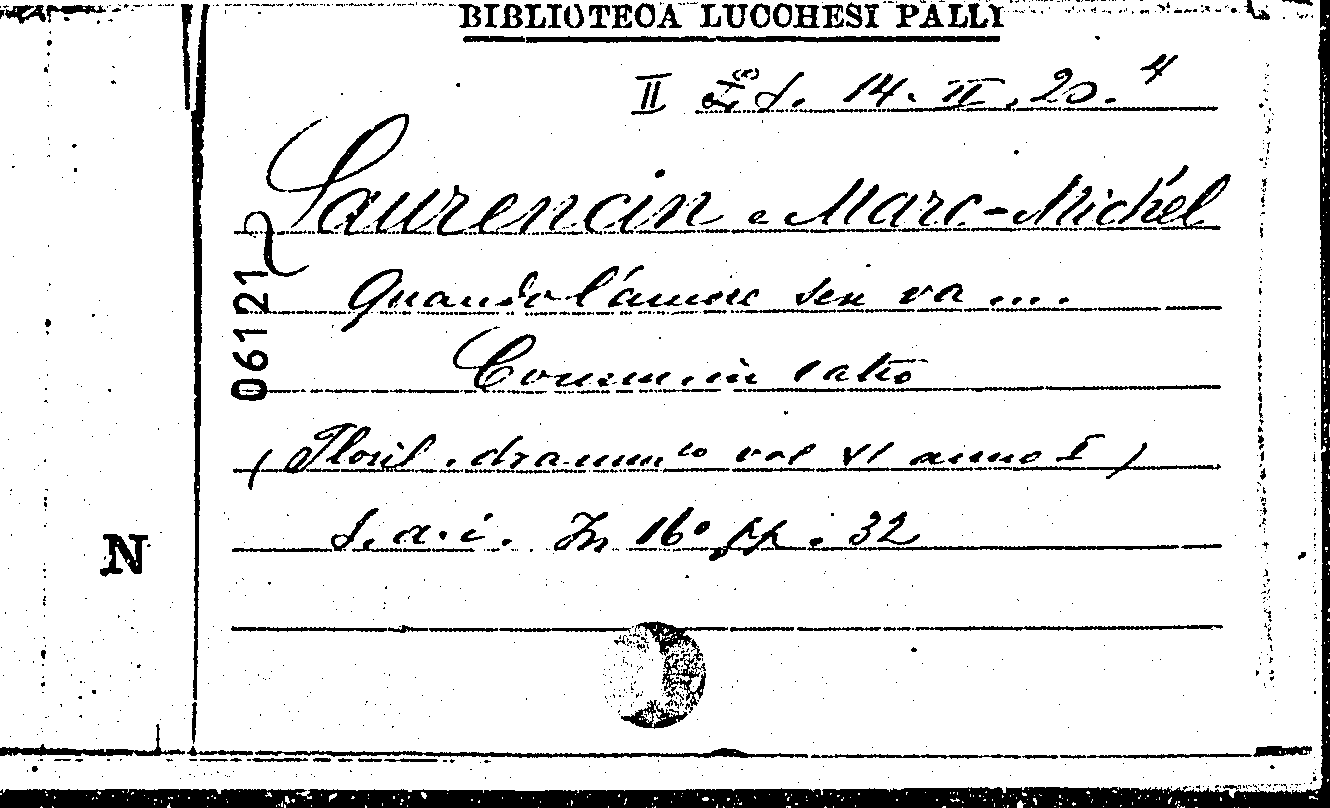 BIBLIOTECA LUCCHESI PALLI
II Ed. 14. II. 20. 4
Laurencin e Marc-Michel
06121
Quando l'amore sen va ....
Comm. in 1 atto
(Floril. dramm.co vol VI anno I)
S. a. i. In 16° pp. 32
N